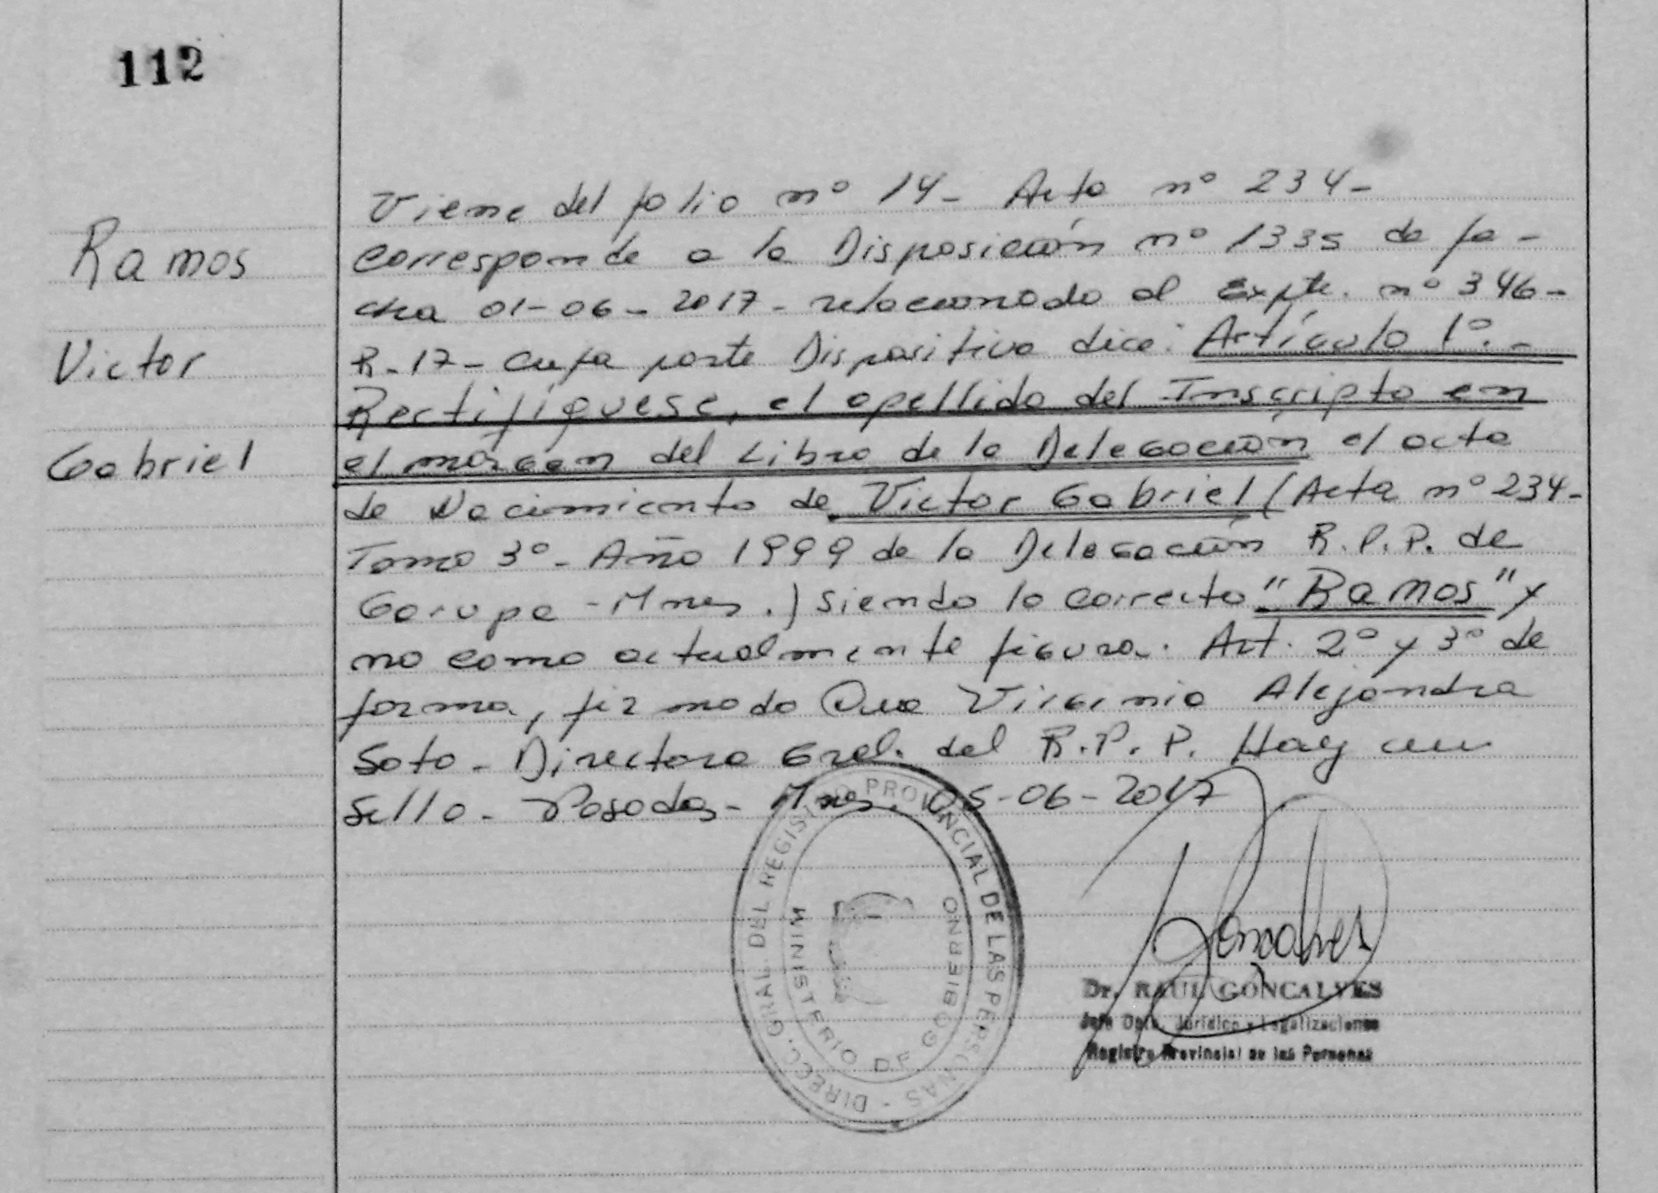 112
Ramos
Victor
Gabriel
Viene del folio nº 14- Acta nº 234-
corresponde a la Disposición nº 1335 de fe-
cha 01-06-2017- relacionado al Expte. nº 346-
R-17- cuya parte Dispositiva dice: Artículo 1º.-
Rectifíquese, el apellido del Inscripto en
el márgen del Libro de la Delegación el acta
de Nacimiento de Victor Gabriel (Acta nº 234-
Tomo 3º- Año 1999 de la Delegación R.P.P. de
Garupa - Mnes.) siendo lo correcto "Ramos" y
no como actualmente figura. Art. 2º y 3º de
forma, firmado Dra Virginia Alejandra
Soto- Directora Gral. del R.P.P. Hay un
sello- Posadas- Mnes. 05-06-2017
DIRECC. GRAL. DEL REGISTRO PROVINCIAL DE LAS PERSONAS -
MINISTERIO DE GOBIERNO
Goncalves
Dr. RAUL GONCALVES
Jefe Dpto. Jurídico y Legalizaciones
Registro Provincial de las Personas